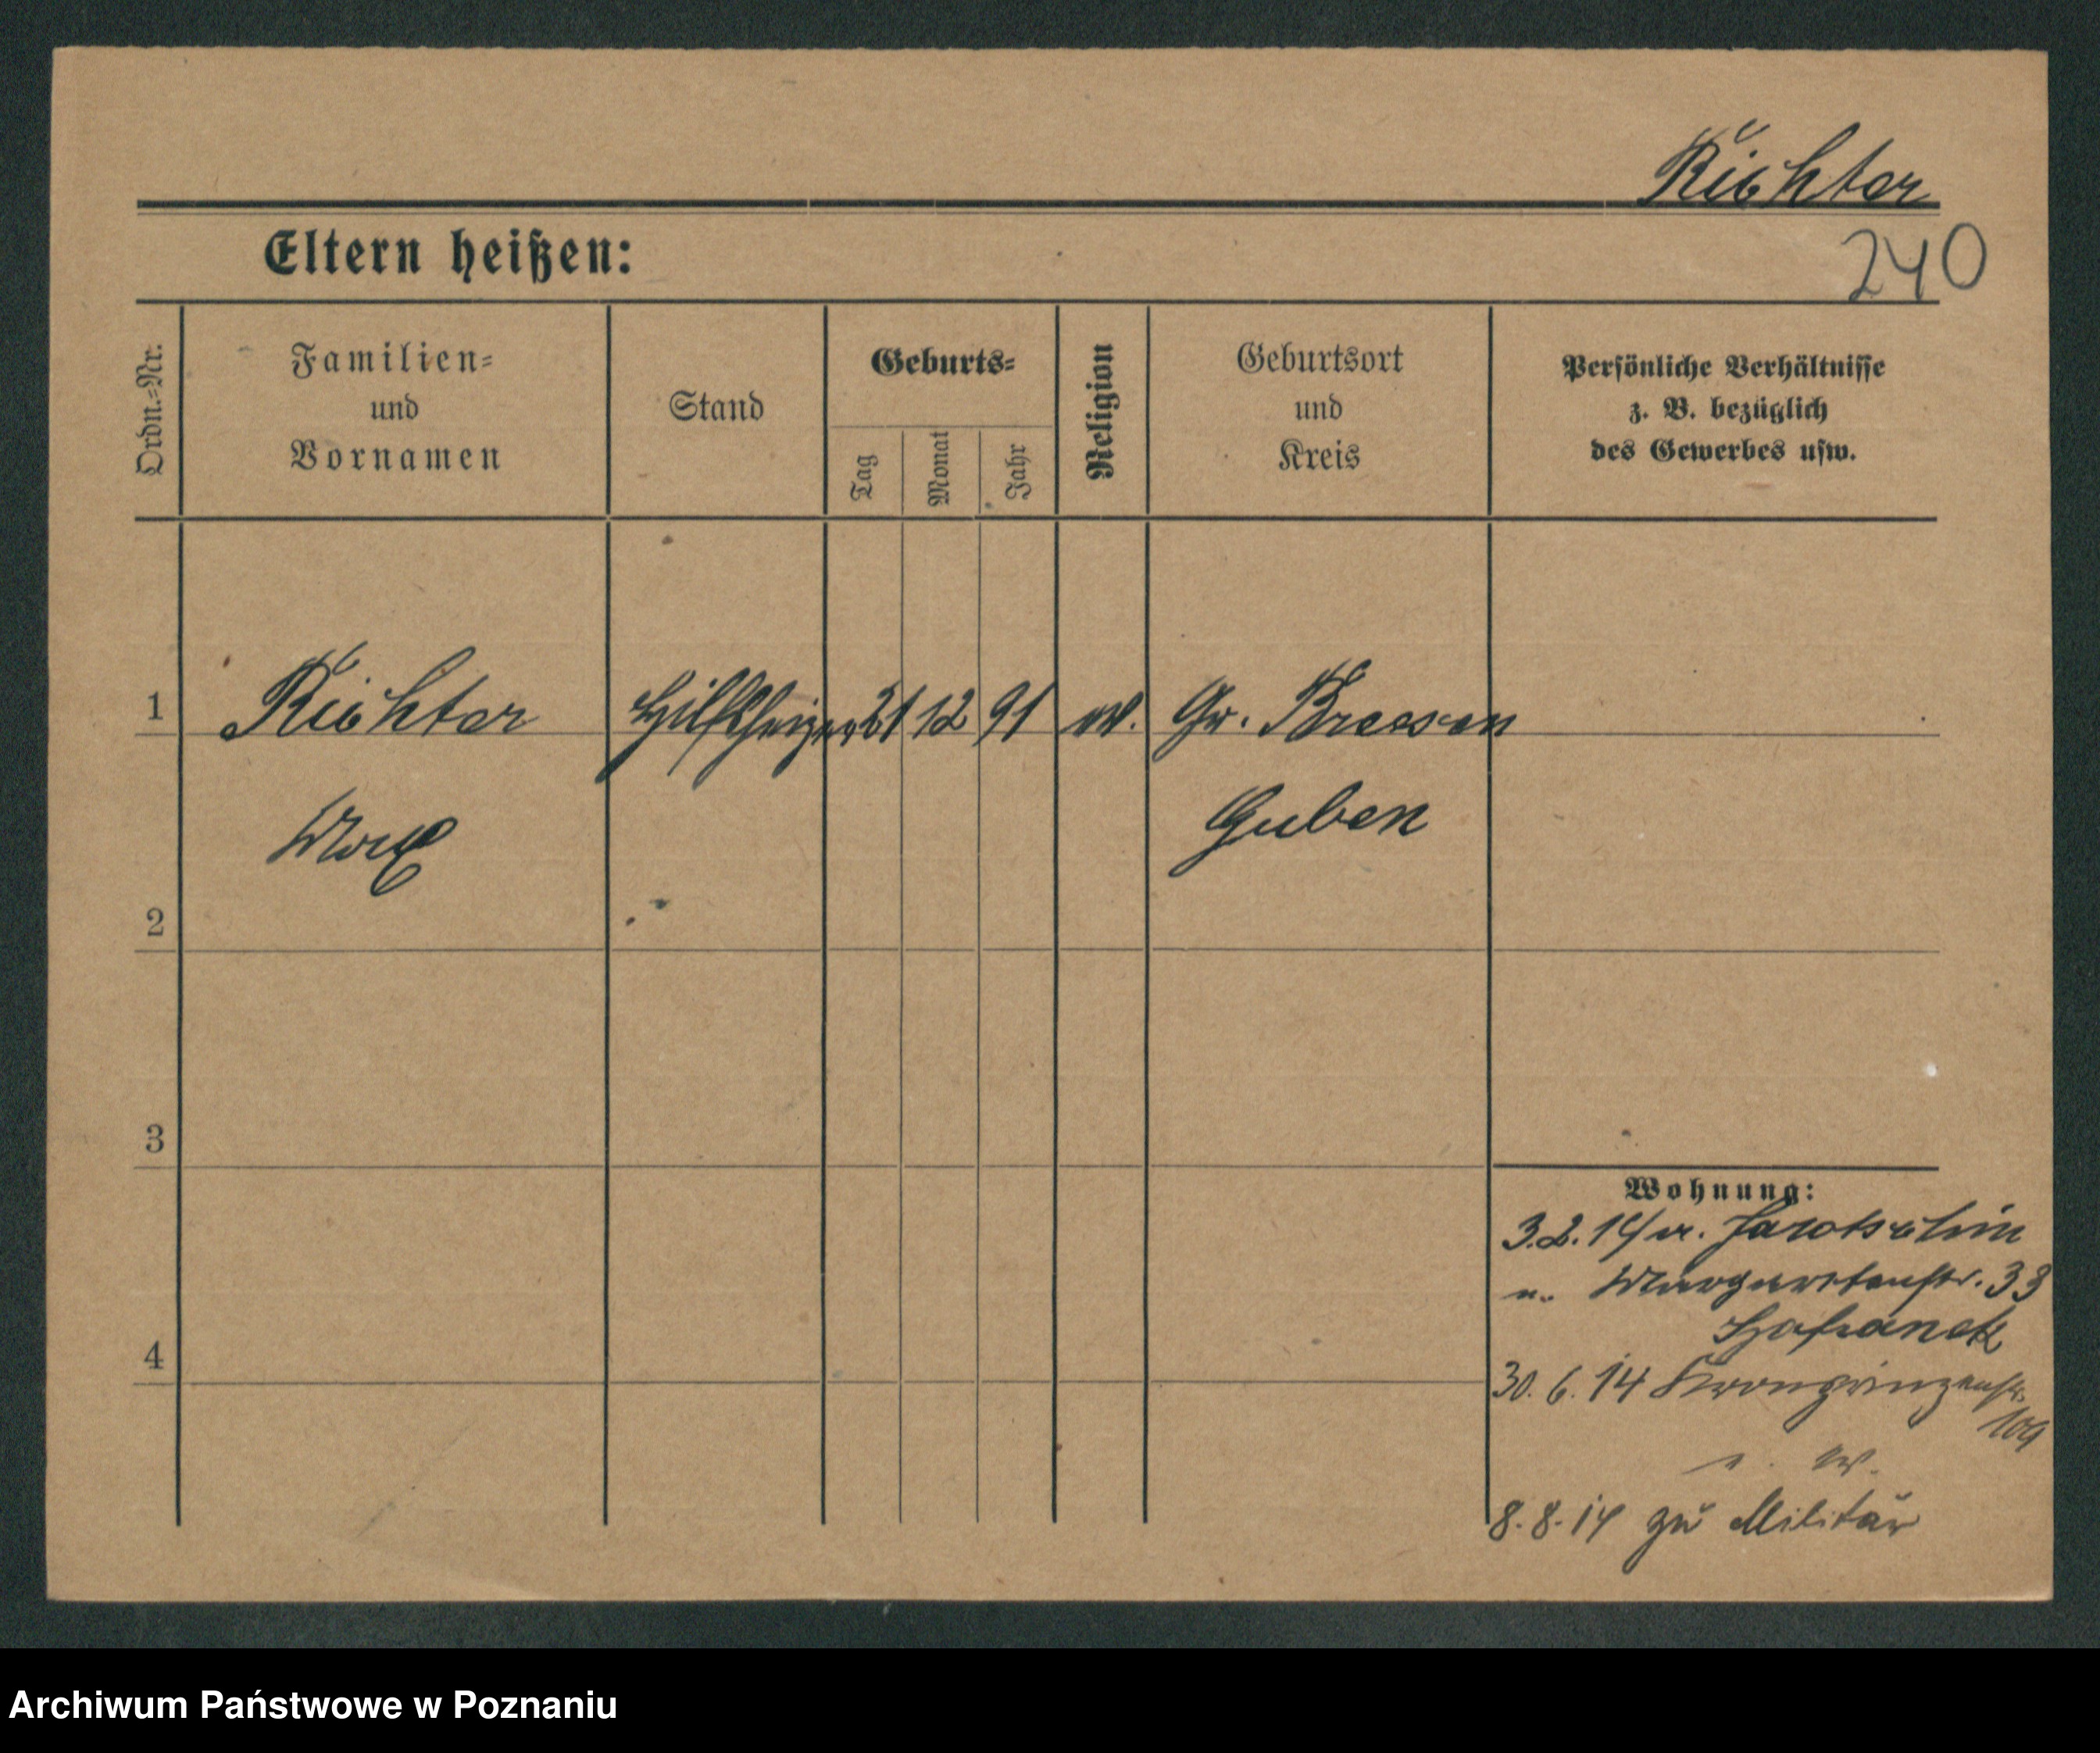 Richter
240
Eltern heißen:
Ordn.=Nr.
Familien=
und
Vornamen
Stand
Geburts=
Tag
Monat
Jahr
Religion
Geburtsort
und
Kreis
Persönliche Verhältnisse
z. B. bezüglich
des Gewerbes usw.
1 Richter Hilfsheizer 21 12 91 ev. Gr. Breesen
Max Guben
2
3
Wohnung:
3.2.14 v. Jarotschin
n. Margaretenstr. 33
4
30. 6. 14 Kronprinzenstr.
109
8. 8. 14 zu Militär
Archiwum Państwowe w Poznaniu